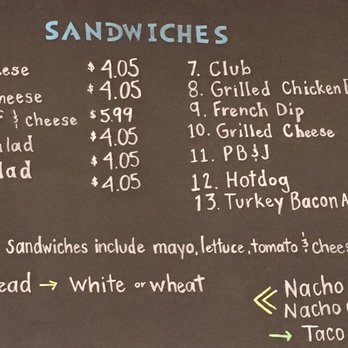 SANDWICHES
eese $4.05
heese $4.05
& cheese $5.99
lad $4.05
lad $4.05
$4.05
7. Club
8. Grilled Chicken
9. French Dip
10. Grilled Cheese
11. PB&J
12. Hotdog
13. Turkey Bacon A
Sandwiches include mayo, lettuce, tomato & Chees
ead → White or wheat
Nacho
Nacho
→ Taco